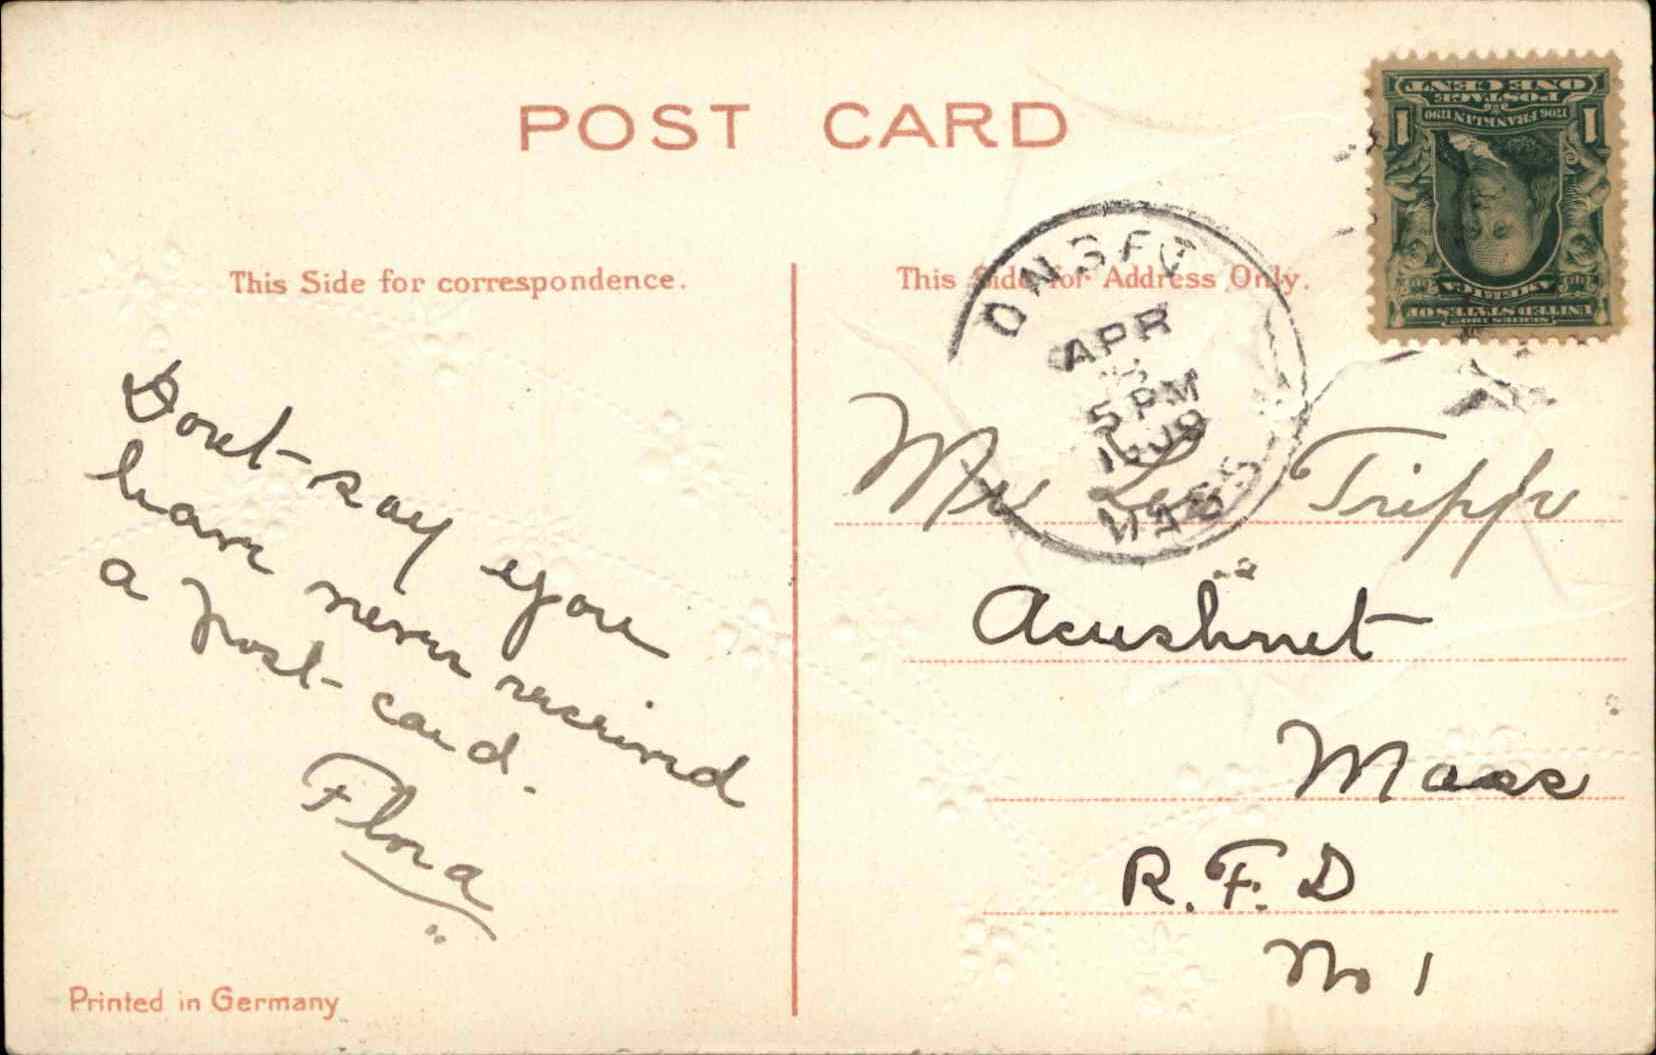 POST CARD
This Side for correspondence.
This Side for Address Only.
ONE CENT
POSTAGE
1706 FRANKLIN 1790
1 1
UNITED STATES OF
AMERICA
ONSET
APR
5 PM
MASS
Dont say you
have never received
a Post-card.
Flora
Mr Tripp
Acushnet
Mass
R.F.D
No 1
Printed in Germany